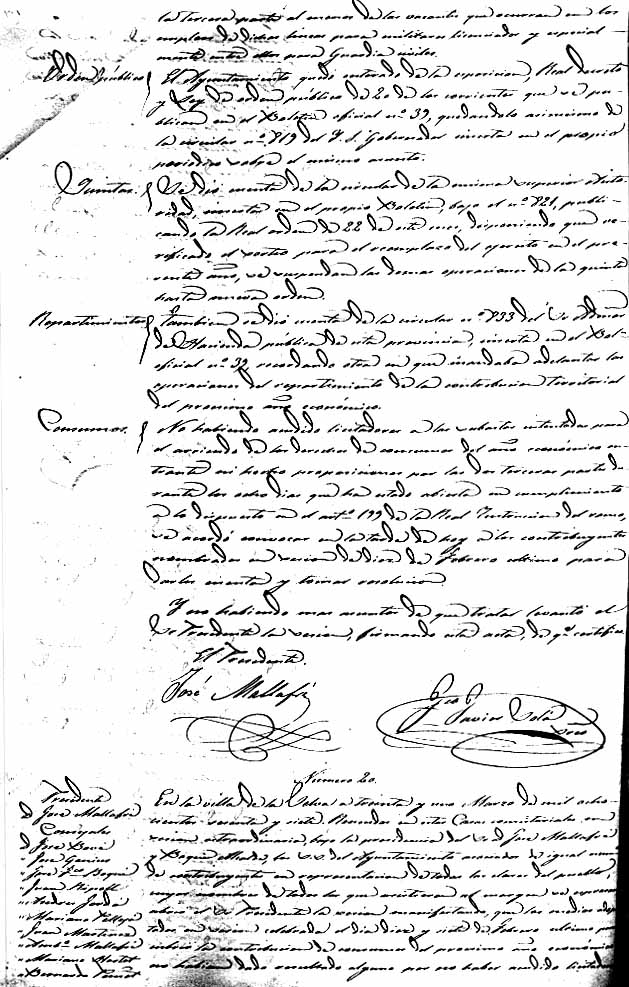 la tercera parte al menos de las vacantes que ocurran en los
empleos de dichas lineas para militares licenciados y especial-
mente entre ellos para Guardias civiles.
Orden público
El Ayuntamiento quedó enterado de la esposicion, Real decreto
y Ley de orden público de 20 de los corrientes que se pu-
blican en el Boletin oficial nº 39, quedandolo asimismo de
la circular nº 819 del Y. S. Gobernador inserta en el propio
periodico sobre el mismo asunto.
Quintas.
Se dió cuenta de la circular de la misma superior Auto-
ridad, inserta en el propio Boletin, bajo el nº 821, publi-
cando la Real orden de 22 de este mes, disponiendo que ve-
rificado el sorteo para el reemplazo del ejercito en el pre-
sente año, se suspendan las demas operaciones de la quinta
hasta nueva orden.
Repartimientos
Tambien se dió cuenta de la circular nº 833 del Sr Admor
de Hacienda pública de esta provincia, inserta en el Bol-
oficial nº 39 recordando otra en que mandaba adelantar las
operaciones del repartimiento de la contribucion territorial
del procsimo año económico.
Consumos.
No habiendo acudido licitadores a las subastas intentadas para
el arriendo de los derechos de consumos del año económico en-
trante ni hecho proposiciones por las dos terceras partes du-
rante los ocho dias que ha estado abierta en cumplimiento
a lo dispuesto en el artº 199 de la Real Instruccion del ramo,
se acordó convocar en la tarde de hoy a los contribuyentes
nombrados en sesion de diez de Febrero ultimo para
darles cuenta y tomar resolucion.
Y no habiendo mas asuntos de que tratar levantó el
Sr Presidente la sesion, firmando esta acta, de qe certifico.
El Presidente.
José Mallafré
Javier Solá
Srio
Número 20.
Presidente
D José Mallafré
Concejales
D José Bová
" José
" José
" Juan Ripoll
" Andres
" Mariano
" Juan Martinez
" Mallafré
" Mariano
" Bernardo
En la villa de la Selva a treinta y uno Marzo de mil ocho-
cientos sesenta y siete Reunidos en esta Casa consistorial, en
sesion estraordinaria, bajo la presidencia del Sr D José Mallafré
y Alcalde, los SS del Ayuntamiento asociados de igual num
de contribuyentes en representacion de todas las clases del pueblo,
cuyos nombres de todos los que asistieron al margen se espresan
abrió el Sr Presidente la sesion manifestando, que los medios adop
tados en sesion celebrada el dia diez y siete de Febrero ultimo pa
cubrir la contribucion de consumos del procsimo año económico
no habian dado resultado alguno por no haber acudido licitado